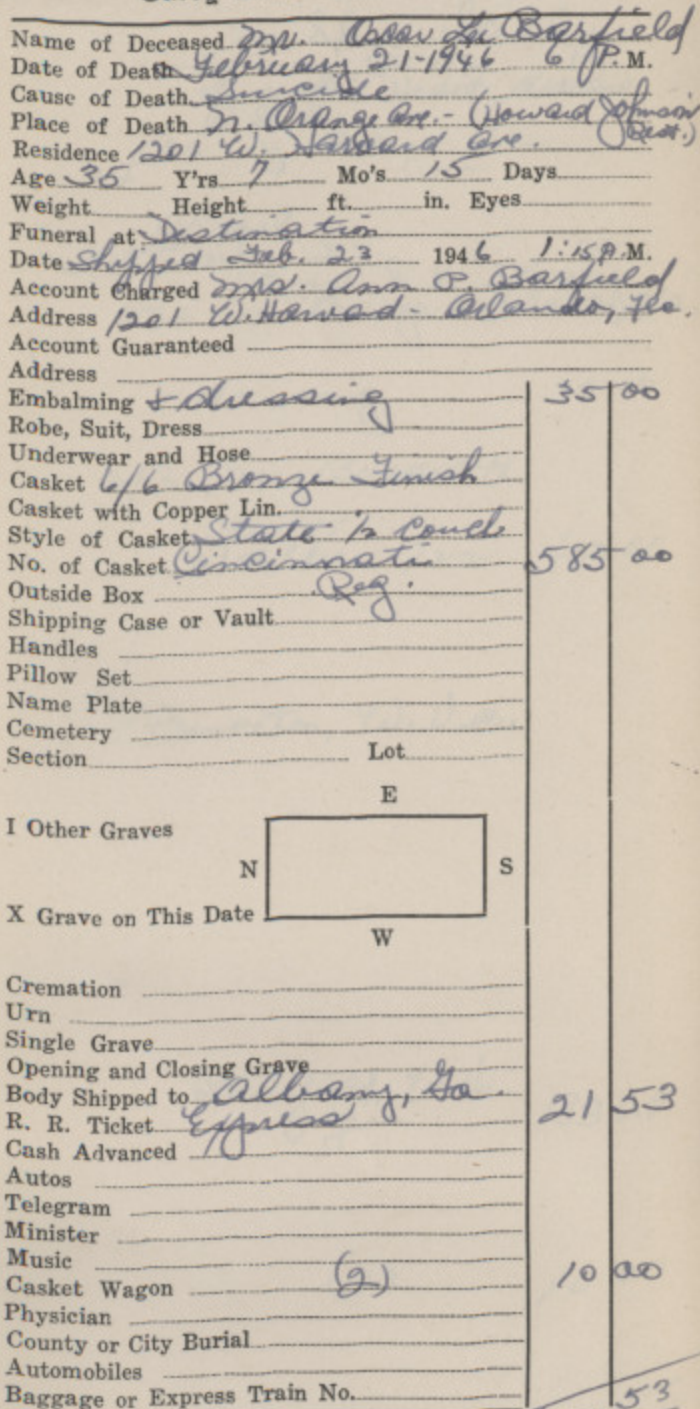 Name of Deceased Mr. Oscar Lee Barfield
Date of Death February 21-1946 6 P.M.
Cause of Death Suicide
Place of Death N. Orange Ave. - (Howard Johnson Rest.)
Residence 1201 W. Harvard Ave.
Age 35 Y'rs 7 Mo's 15 Days
Weight Height ft. in. Eyes
Funeral at Destination
Date Shipped Feb. 23 1946 1:15 P.M.
Account Charged Mrs. Ann P. Barfield
Address 1201 W. Harvard - Orlando, Fla.
Account Guaranteed
Address
Embalming & dressing 35 00
Robe, Suit, Dress
Underwear and Hose
Casket 6/6 Bronze Finish
Casket with Copper Lin.
Style of Casket State 1/2 Couch
No. of Casket Cincinnati 585 00
Outside Box Reg.
Shipping Case or Vault
Handles
Pillow Set
Name Plate
Cemetery
Section Lot
E
I Other Graves
N S
X Grave on This Date
W
Cremation
Urn
Single Grave
Opening and Closing Grave
Body Shipped to Albany, Ga. 21 53
R. R. Ticket Express
Cash Advanced
Autos
Telegram
Minister
Music
Casket Wagon (2) 10 00
Physician
County or City Burial
Automobiles
Baggage or Express Train No. 53